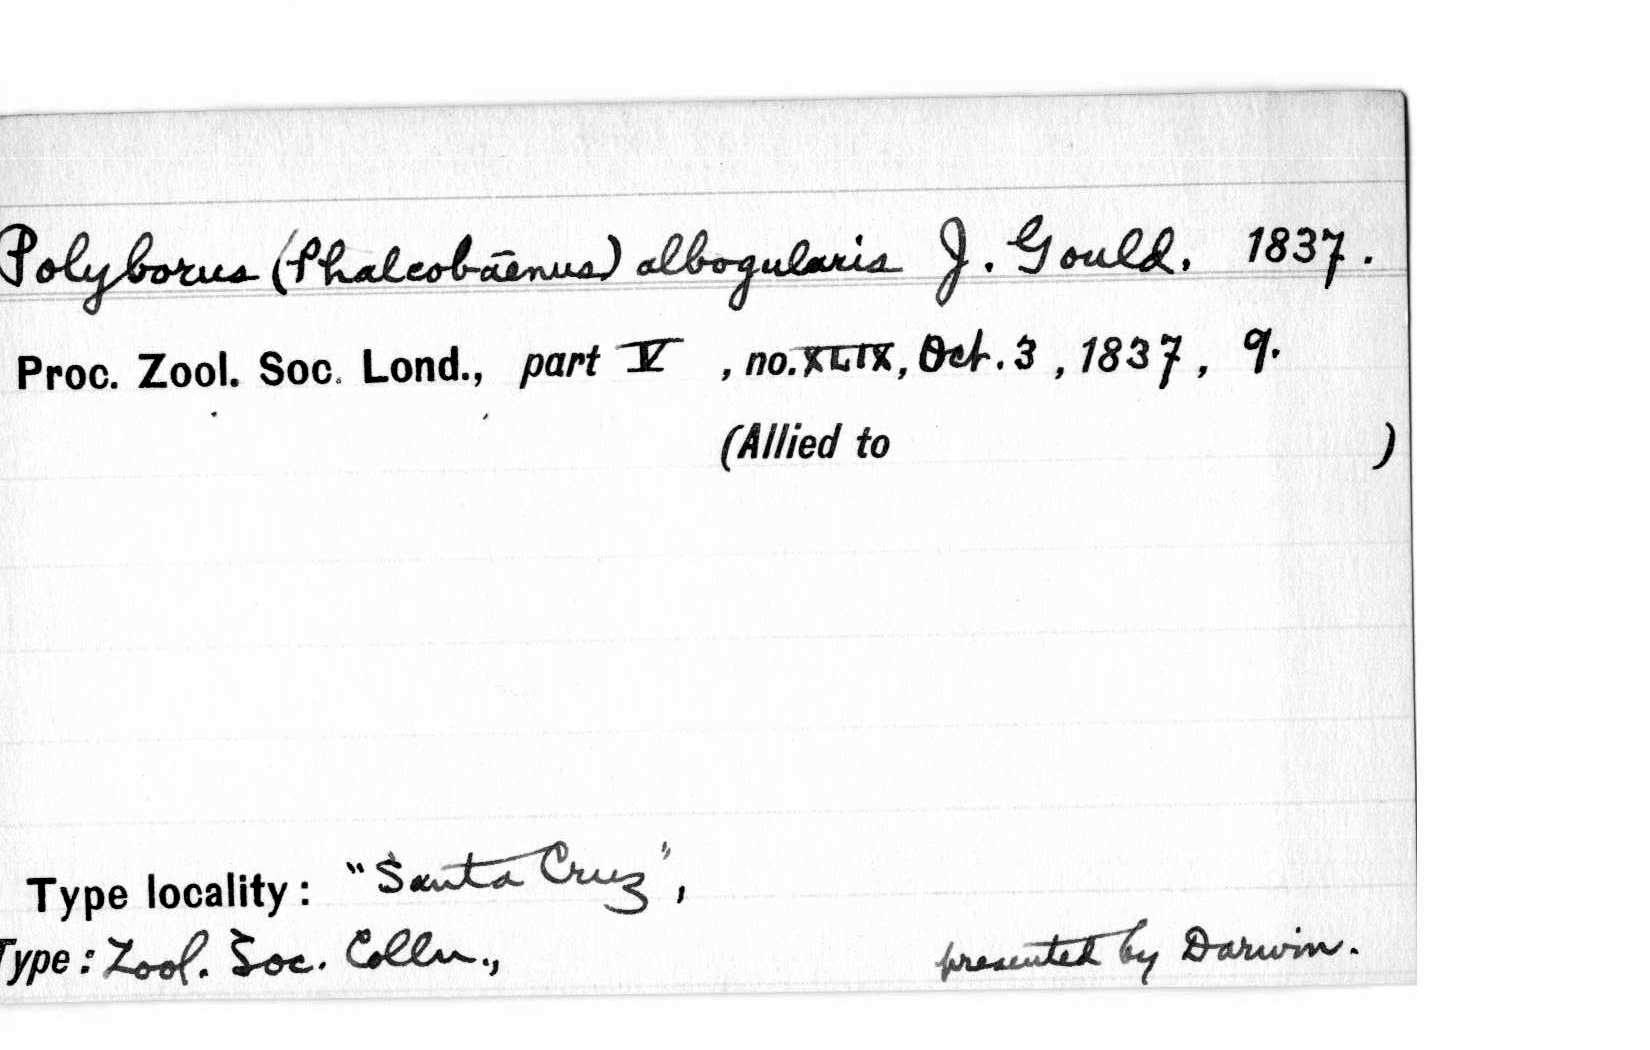 Polyborus (Phalcobaenus) albogularis J. Gould. 1837.
Proc. Zool. Soc. Lond., part V , no. XLIX, Oct. 3, 1837, 9.
(Allied to )
Type locality: "Santa Cruz",
Type: Zool. Soc. Colln., presented by Darwin.